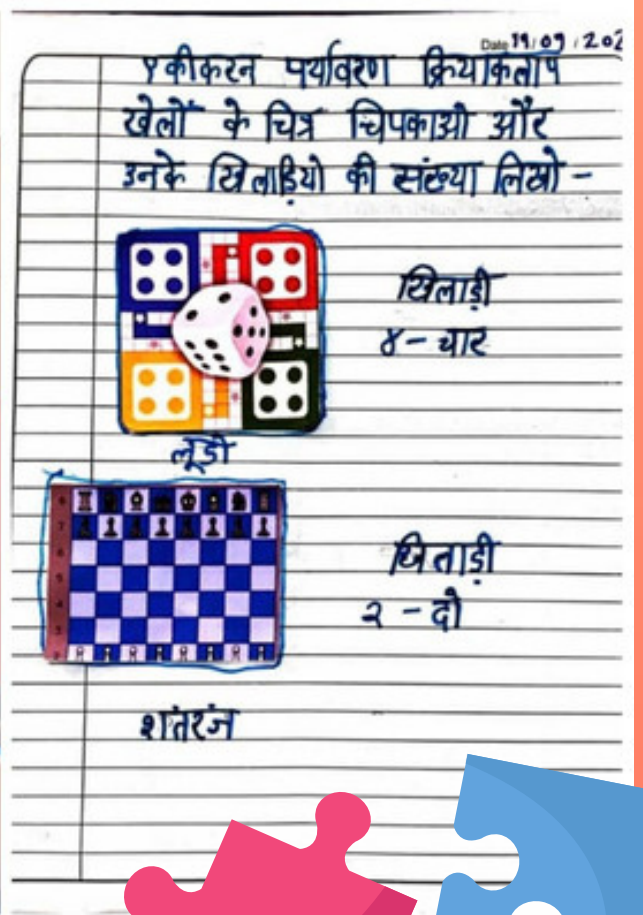 Date 19/09/202
एकीकरन पर्यावरण क्रियाकलाप
खेलों के चित्र चिपकाओ और
उनके खिलाड़ियो की संख्या लिखो -
खिलाड़ी
४ - चार
लूडो
8
7
6
5
4
3
2
खिलाड़ी
२ - दो
शतंरंज